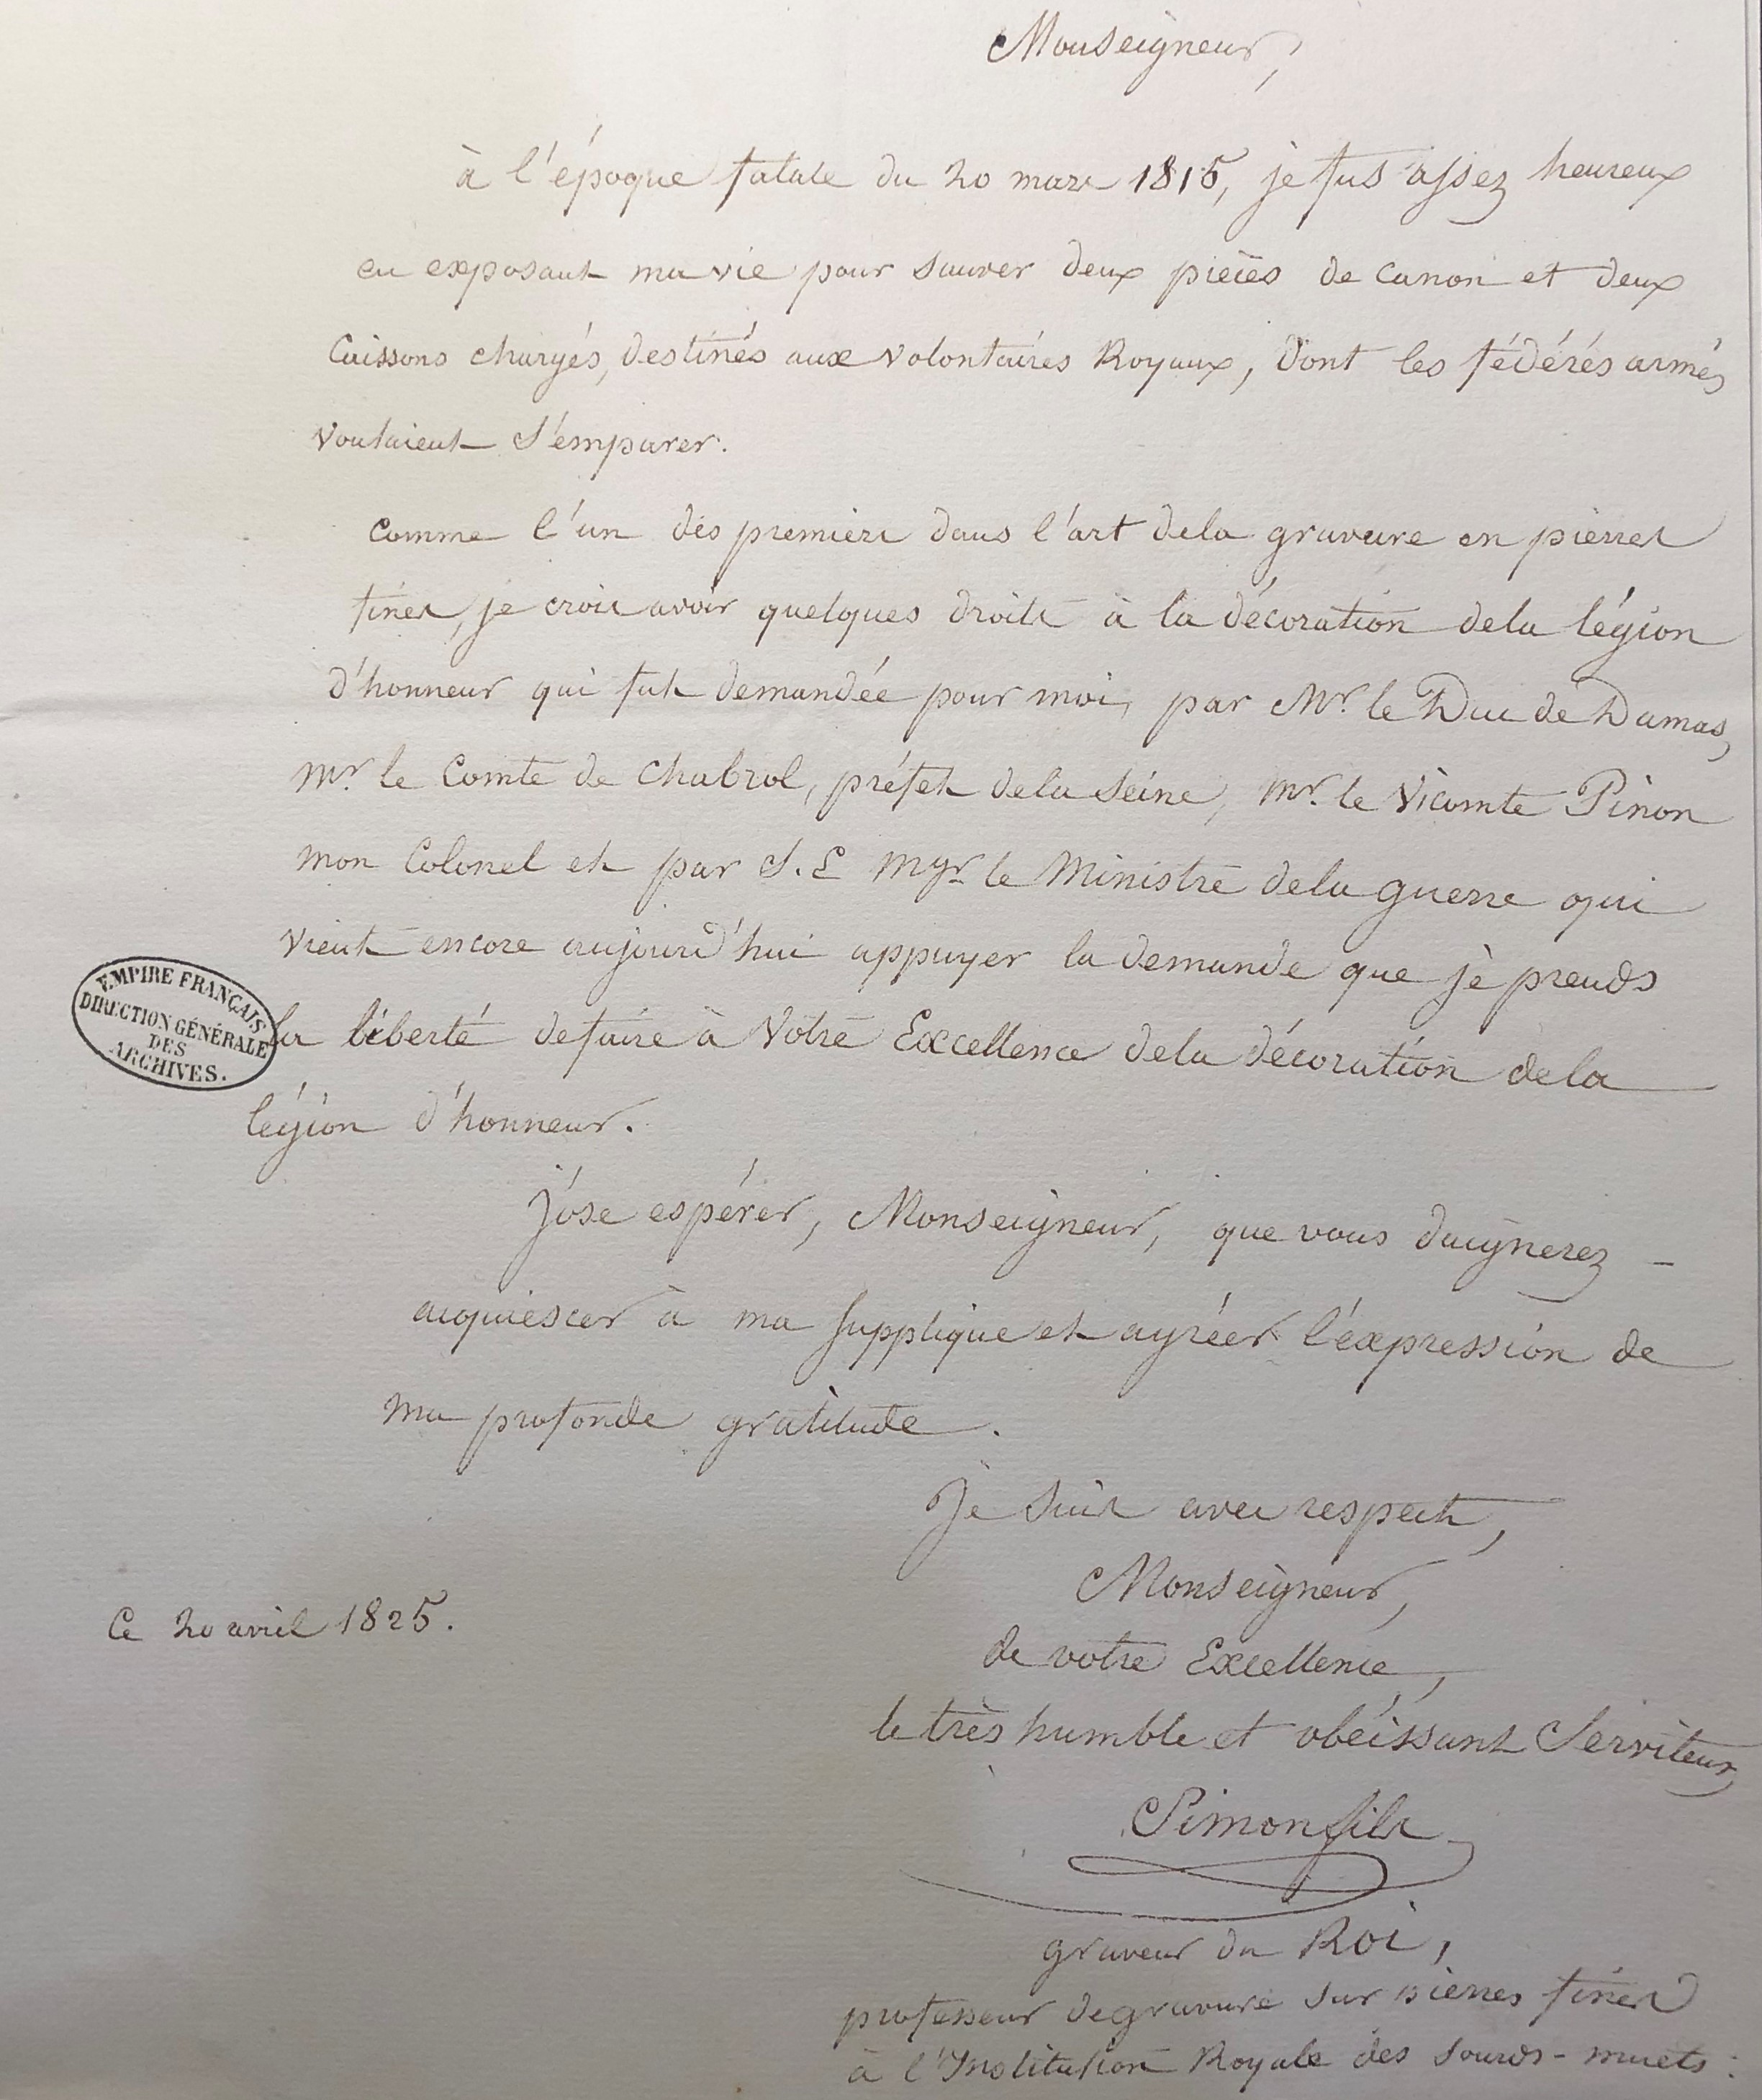 Monseigneur,
à l'époque fatale du 20 mars 1815, je fus assez heureux
en exposant ma vie pour sauver deux pièces de canon et deux
Caissons chargés, destinés aux volontaires Royaux, dont les fédérés armés
voulaient s'emparer.
Comme l'un des premiers dans l'art de la gravure en pierres
fines, je crois avoir quelques droits à la décoration de la légion
d'honneur qui fut demandée pour moi, par Mr. le Duc de Damas,
Mr. le Comte de Chabrol, préfet de la Seine, Mr. le Vicomte Pinon
mon Colonel et par S. E Mgr. le Ministre de la guerre qui
vient encore aujourd'hui appuyer la demande que je prends
la liberté de faire à Votre Excellence de la décoration de la
légion d'honneur.
EMPIRE FRANÇAIS
DIRECTION GÉNÉRALE
DES
ARCHIVES.
J'ose espérer, Monseigneur, que vous daignerez -
acquiescer à ma supplique et agréer l'expression de
ma profonde gratitude.
Je suis avec respect,
Monseigneur,
de votre Excellence,
le très humble et obéissant Serviteur,
Ce 20 avril 1825.
Simon fils
graveur du Roi,
professeur de gravure sur pierres fines
à l'Institution Royale des Sourds-muets.